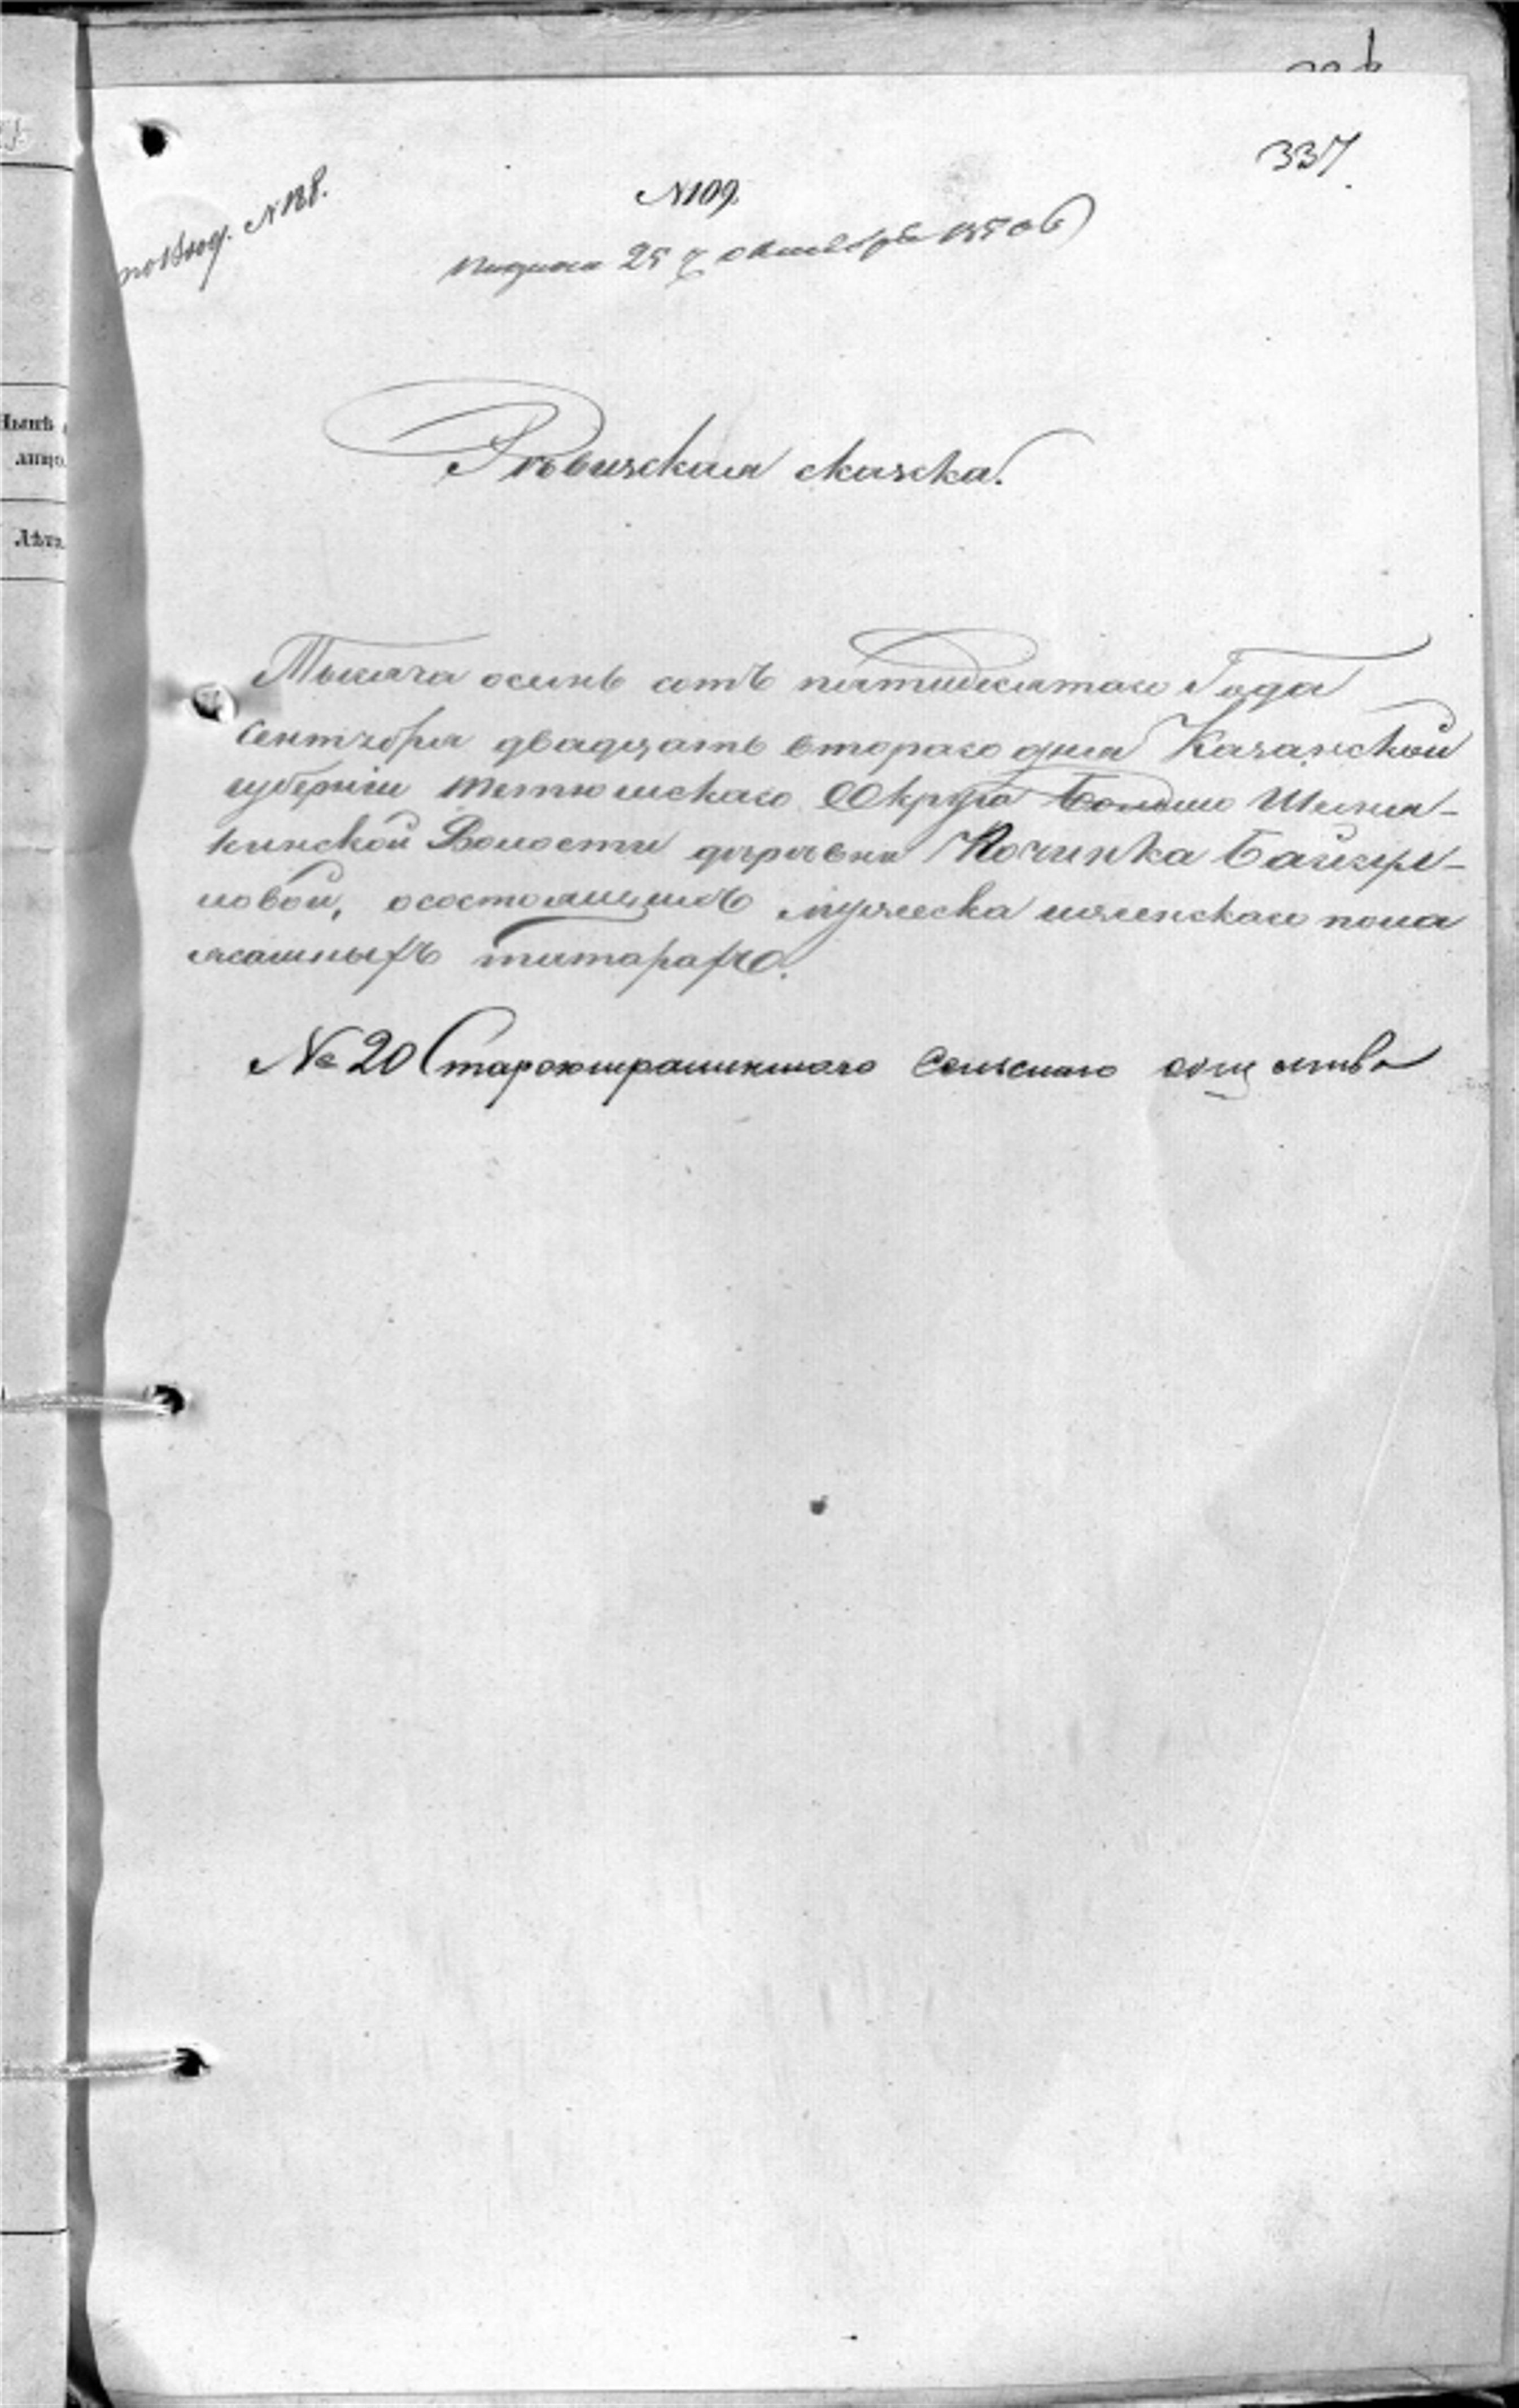 337
N 109
по вход. N 188.
подана 25 г октября 1850 г
Ревизская сказка.
Тысяча осемь сотъ пятидесятаго Года
Сентября двадцать втораго дня Казанской
губерніи Тетюшскаго Округа Больше Шемя-
кинской Волости деревни Починка Байгул-
новой, о состоящихъ мужеска и женскаго пола
ясашныхъ татарахъ.
№ 20 Сельскаго общества
Нынѣ
лицо.
Лѣта.